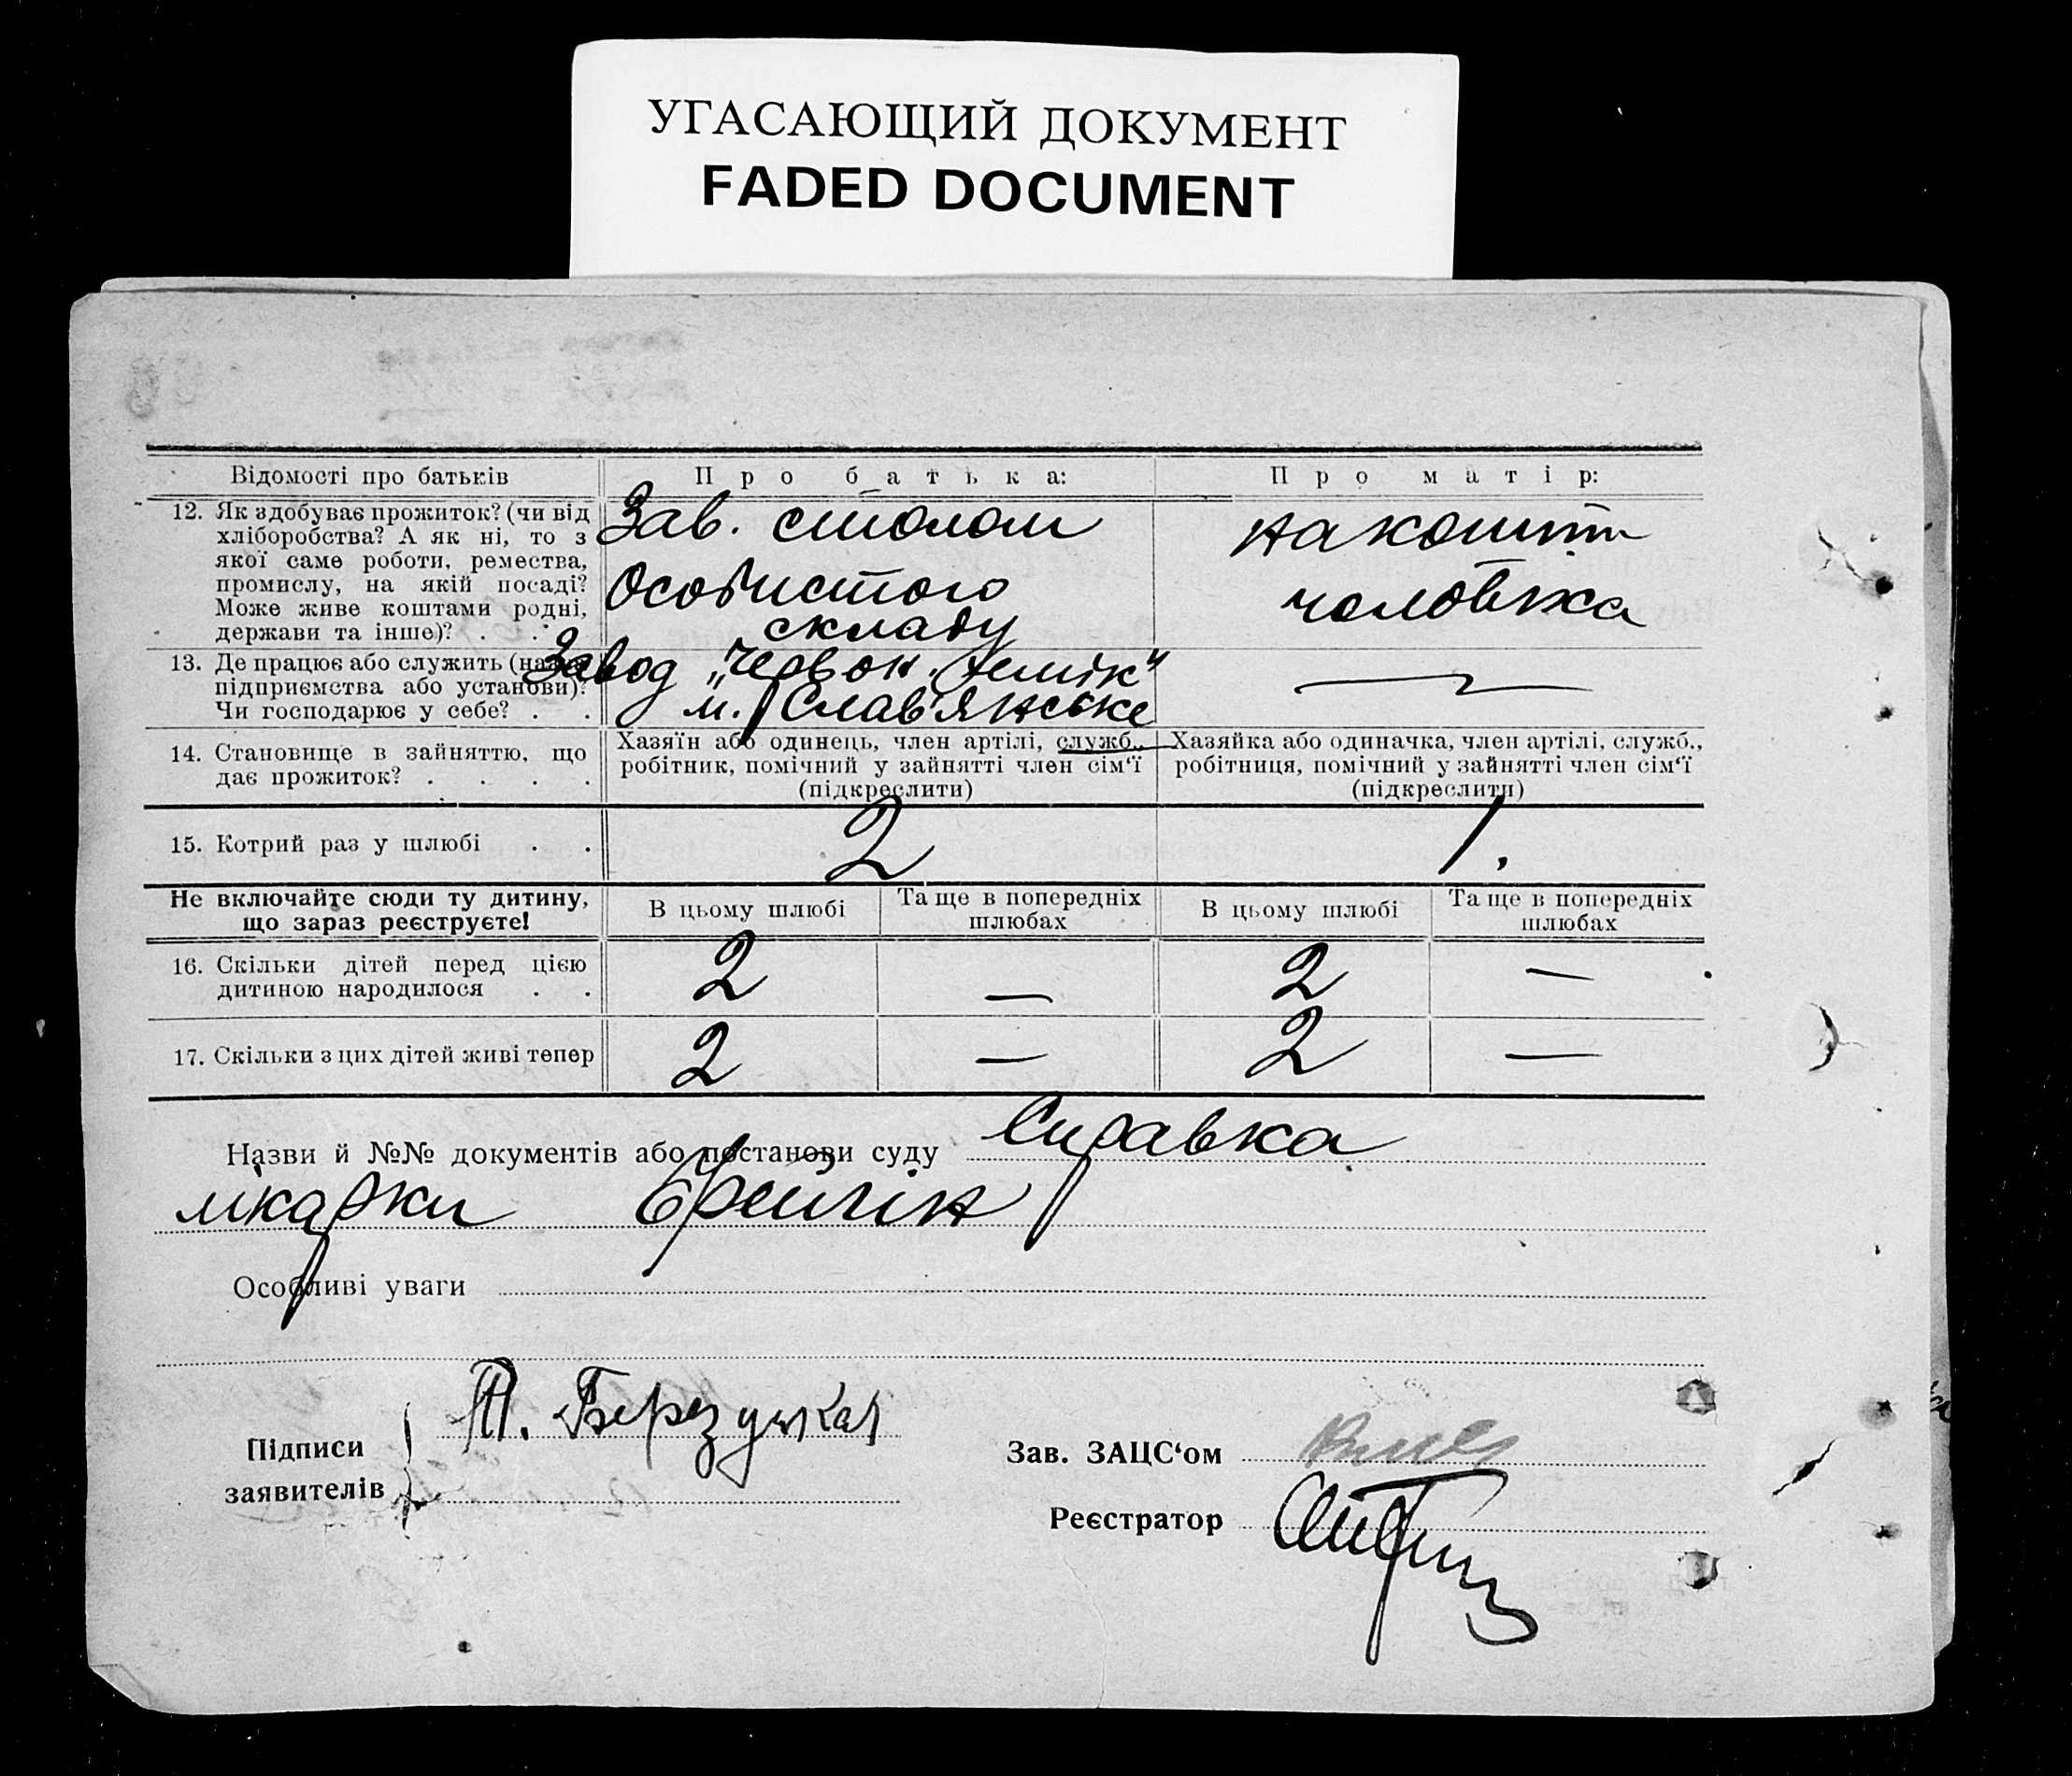 УГАСАЮЩИЙ ДОКУМЕНТ
FADED DOCUMENT
Відомості про батьків
Про батька:
Про матір:
12. Як здобуває прожиток? (чи від
хліборобства? А як ні, то з
якої саме роботи, ремества,
промислу, на якій посаді?
Може живе коштами родні,
держави та інше)? . .
Зав. столом
Особистого
складу
на кошти
чоловіка
13. Де працює або служить (назва
підприємства або установи)?
Чи господарює у себе? . .
Завод „Червон. Хемік“
м. Слав'янське
—
14. Становище в зайняттю, що
дає прожиток? . . . .
Хазяїн або одинець, член артілі, служб.,
робітник, помічний у зайнятті член сім‘ї
(підкреслити)
Хазяйка або одиначка, член артілі, служб.,
робітниця, помічний у зайнятті член сім‘ї
(підкреслити)
15. Котрий раз у шлюбі . .
2
1.
Не включайте сюди ту дитину,
що зараз реєструєте!
В цьому шлюбі
Та ще в попередніх
шлюбах
В цьому шлюбі
Та ще в попередніх
шлюбах
16. Скільки дітей перед цією
дитиною народилося . .
2
—
2
—
17. Скільки з цих дітей живі тепер
2
—
2
—
Назви й №№ документів або постанови суду Справка
лікарки
Особливі уваги
Підписи
заявителів
Зав. ЗАЦС‘ом
Реєстратор